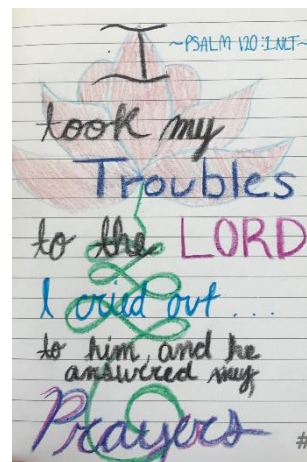 ~PSALM 120:1.NLT~
I
took my
Troubles
to the LORD
I cried out...
to him, and he
answered my
Prayers
#